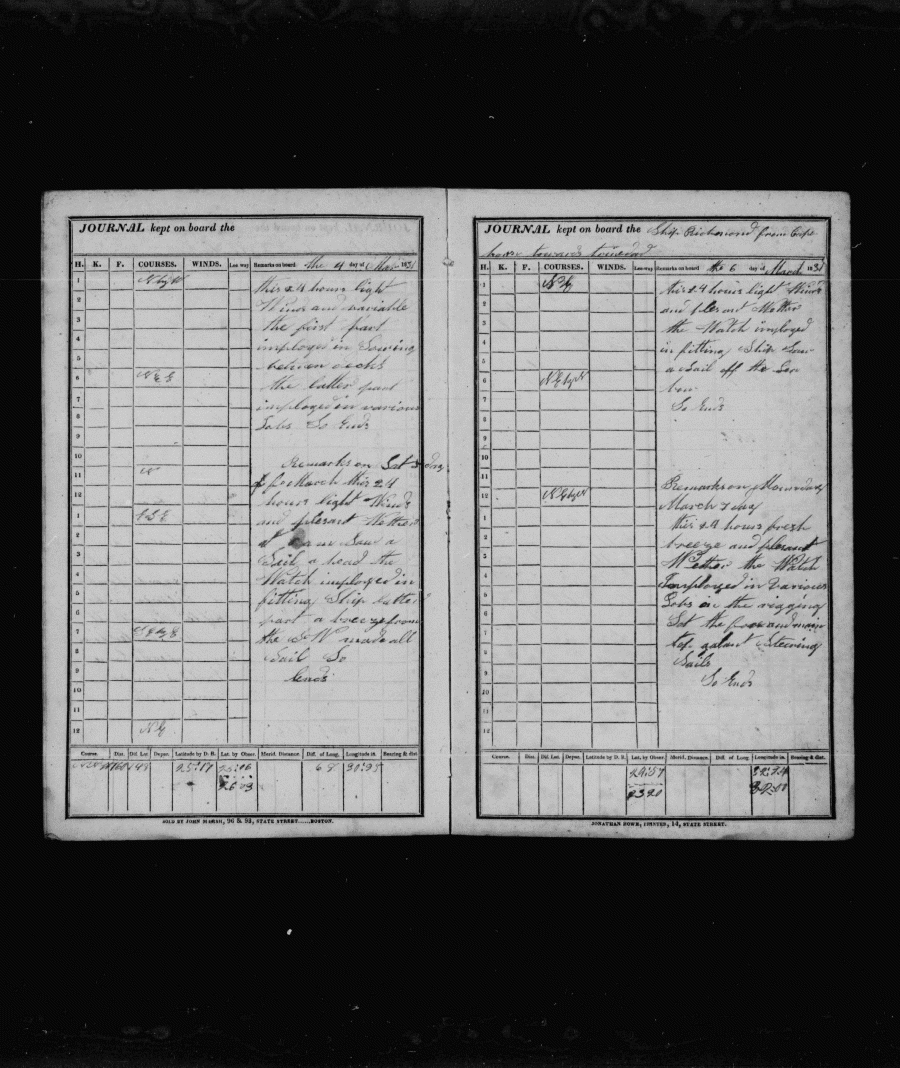 JOURNAL kept on board the
H. K. F. COURSES. WINDS. Lee way Remarks on board the 4 day of Mar 1831
1 N by W this 24 hours light
2 Winds and variable
3 the first part
4 imployed in Sowing
5 between decks
6 the latter part
7 imployed in various
8 Jobs So Ends
9
10 Remarks on Sat 5 day
11 N of March this 24
12 hours light Winds
1 and plesant Wether
2 at am Saw a
3 Sail a head the
4 Watch imployed in
5 fitting Ship latter
6 part a breeze from
7 the made all
8 Sail So
9 Ends
10
11
12 NE
Course. Dist. Dif. Lat. Depar. Latitude by D. R. Lat. by Obser. Merid. Distance. Diff. of Long. Longitude in. Bearing & dist.
25:17 25:16 30:35
26 03
SOLD BY JOHN MARSH, 96 & 98, STATE STREET.....BOSTON.
JOURNAL kept on board the Ship Richmond from Cape
horn towards
H. K. F. COURSES. WINDS. Lee way Remarks on board the 6 day of March 1831
1 this 24 hours light Winds
2 and plesant Wether
3 the Watch imployed
4 in fitting Ship Saw
5 a Sail off the Lee
6 NE by N bow
7 So Ends
8
9
10
11 Remarks on Monnday
12 NE by N March 7 day
1 this 24 hours fresh
2 breeze and plesant
3 Wether the Watch
4 Imployed in Various
5 Jobs in the rigging
6 Set the fore and main
7 top galant Steering
8 Sails
9 So Ends
10
11
12
Course. Dist. Dif. Lat. Depar. Latitude by D. R. Lat. by Obser. Merid. Distance. Diff. of Long. Longitude in. Bearing & dist.
24:57 32:24
2320
JONATHAN HOWE, PRINTER, 14, STATE STREET.